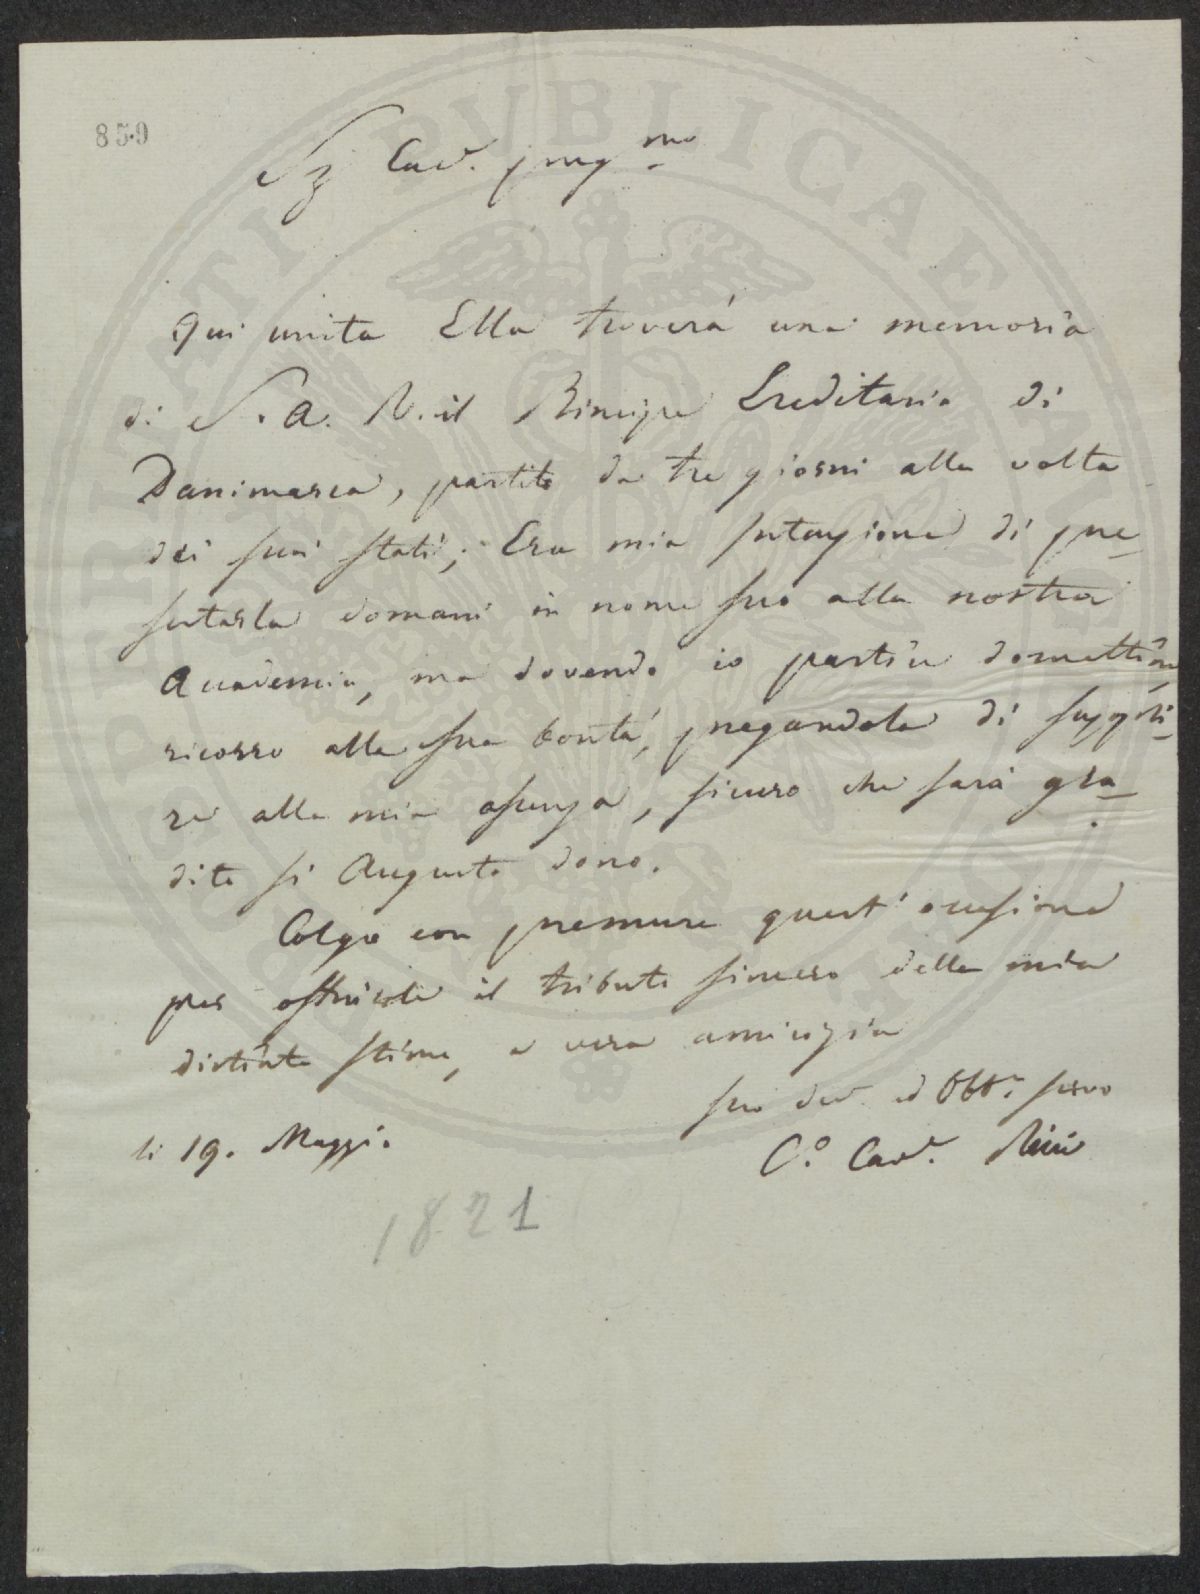 859
Sig Cav. preg.mo
Qui unita Ella troverá una memoria
di S. A. R. il Principe Ereditario di
Danimarca, partito da tre giorni alla volta
dei suoi stati; Era mia intenzione di pre-
sentarla domani in nome suo alla nostra
Accademia, ma dovendo io partire domattina,
ricorro alla sua bontá, pregandola di suppli-
re alla mia assenza, sicuro che sará gra-
dito si Augusto dono.
Colgo con premura quest' occasione
per offrirle il tributo sincero della mia
distinta stima, e vera amicizia
suo dev. ed Obb.mo servo
li 19. Maggio
C.o Cav.
1821
PUBLICAE